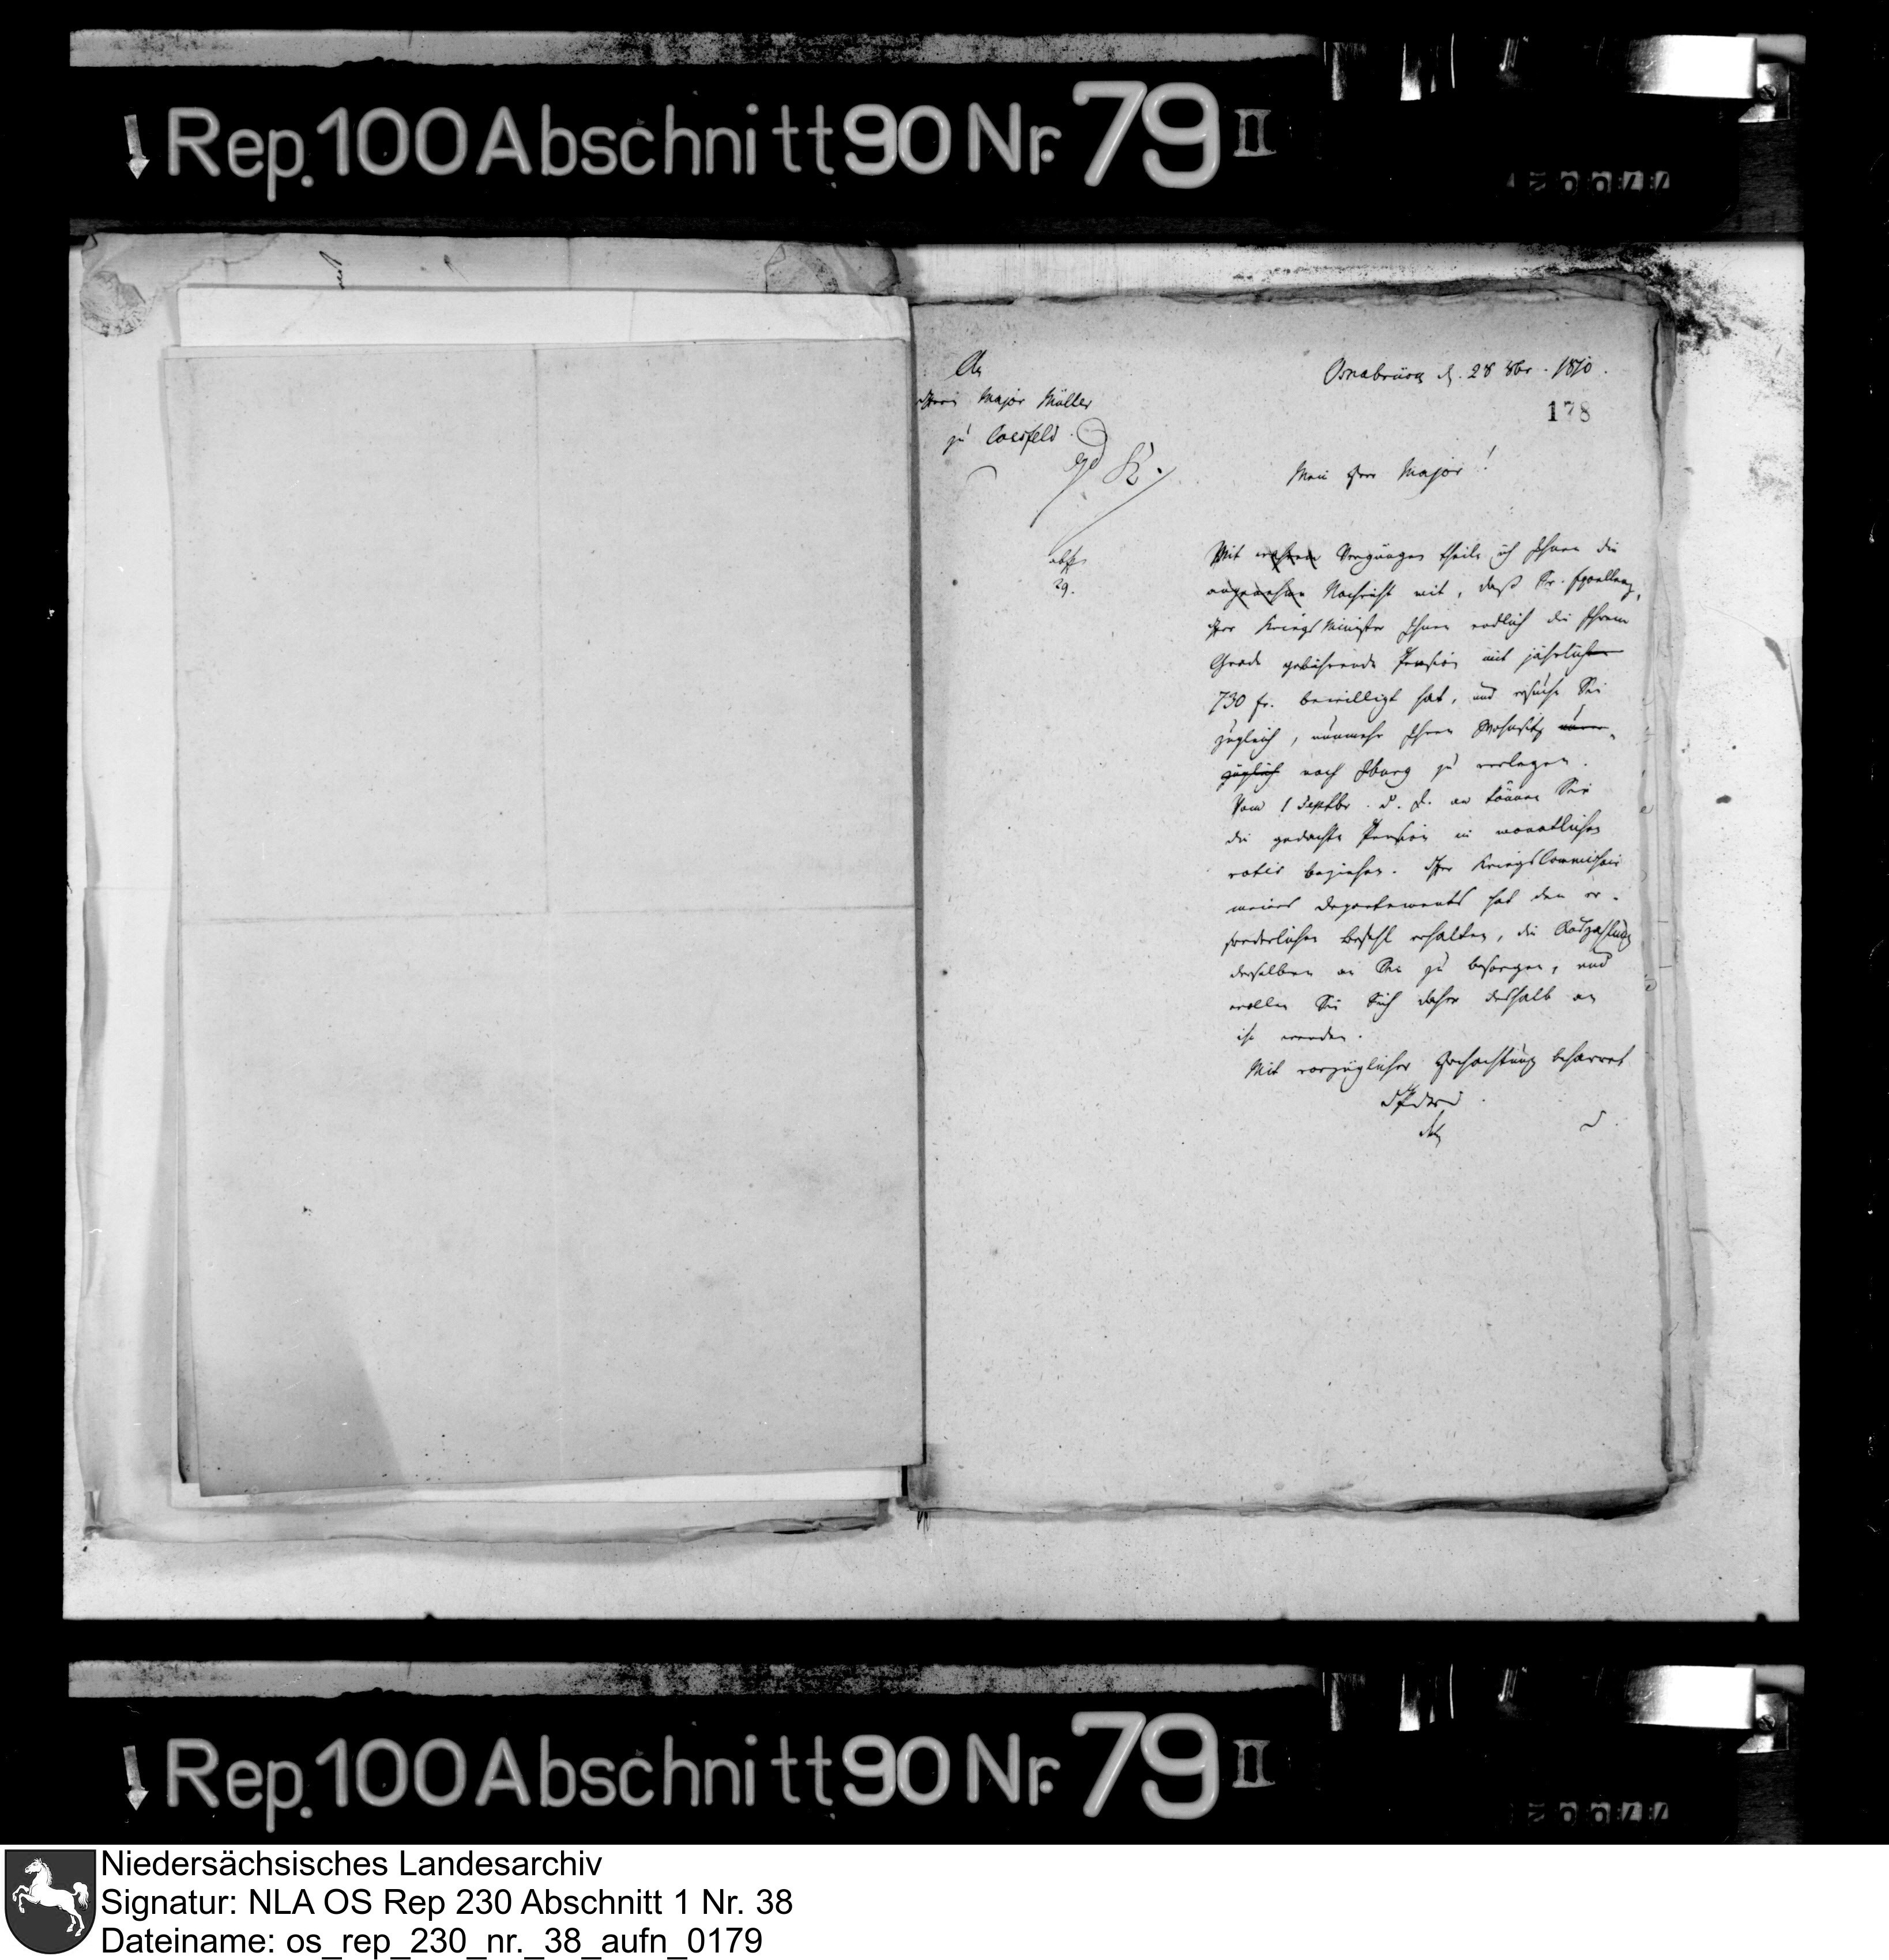 Rep. 100 Abschnitt 90 Nr. 79 II
An
Herrn Major Müller
zu Coesfeld.
Osnabrück d. 28 8br. 1810.
178
Mein Herr Major!
abg.
29.
Mit wahrem Vergnügen theile ich Ihnen die
angenehme Nachricht mit, daß Sr. Excellenz,
Herr Kriegs Minister Ihnen endlich die Ihrem
Grade gebührende Pension mit jährlichen
730 fr. bewilligt hat, und ersuche Sie
zugleich, nunmehr Ihren Wohnsitz unver-
züglich nach Iburg zu verlegen.
Vom 1 Septbr. d. J. an können Sie
die gedachte Pension in monatlichen
ratis beziehen. Herr Kriegs Commissair
meines Departements hat den er-
forderlichen Befehl erhalten, die Auszahlung
derselben an Sie zu besorgen, und
wollen Sie Sich daher deshalb an
ihn wenden.
Mit vorzüglicher Hochachtung beharret
Rep. 100 Abschnitt 90 Nr. 79 II
Niedersächsisches Landesarchiv
Signatur: NLA OS Rep 230 Abschnitt 1 Nr. 38
Dateiname: os_rep_230_nr._38_aufn_0179